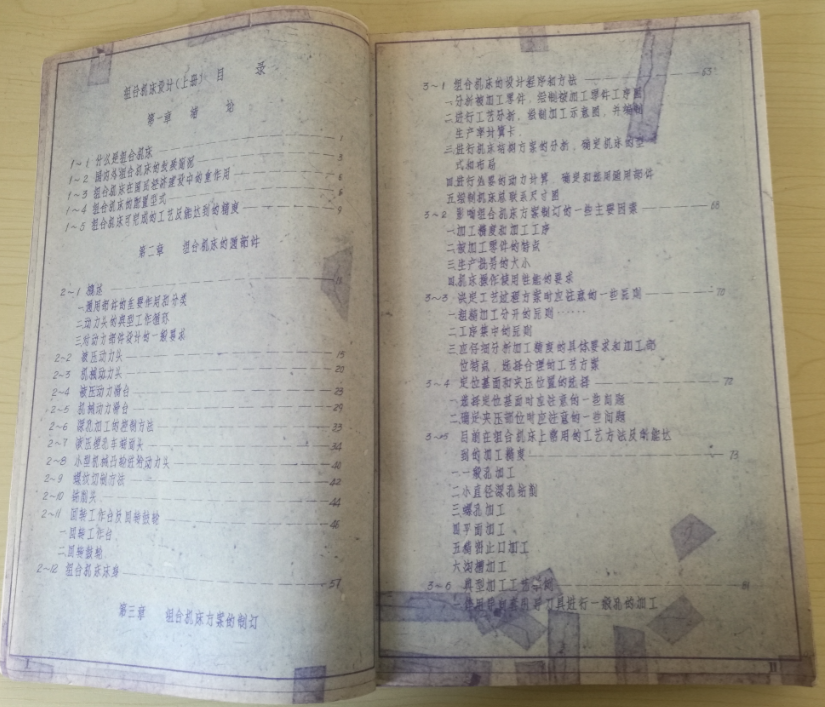 组合机床设计(上册) 目 录
第一章 绪 论
1~1 什么是组合机床 1
1~2 国内外组合机床的发展概况 3
1~3 组合机床在国民经济建设中的重作用 5
1~4 组合机床的配置型式 6
1~5 组合机床可完成的工艺及能达到的精度 9
第二章 组合机床的通用部件
2~1 概述
一通用部件的主要作用和分类
二动力头的典型工作循环
三对动力部件设计的一般要求
2~2 液压动力头 15
2~3 机械动力头
2~4 液压动力滑台
2~5 机械动力滑台 29
2~6 深孔加工的控制方法
2~7 液压镗孔车端面头
2~8 小型机械凸轮进给动力头
2~9 螺纹切削方法 42
2~10 铣削头 44
2~11 回转工作台及回转鼓轮 46
一回转工作台
二回转鼓轮
2~12 组合机床床身 57
第三章 组合机床方案的制订
I
3~1 组合机床的设计程序和方法
一分析被加工零件，绘制被加工零件工序图
二进行工艺分析，绘制加工示意图，并编制
生产率计算卡
三进行机床结构方案的分析，确定机床的型
式和布局
四进行必要的动力计算，确定和选用通用部件
五绘制机床总联系尺寸图
3~2 影响组合机床方案制订的一些主要因素 68
一加工精度和加工工序
二被加工零件的特点
三生产批量的大小
四机床操作使用性能的要求
3~3 决定工艺过程方案时应注意的一些原则
一粗精加工分开的原则……
二工序集中的原则
三应仔细分析加工精度的具体要求和加工部
位特点，选择合理的工艺方案
3~4 定位基面和夹压位置的选择
一选择定位基面时应注意的一些问题
二确定夹压部位时应注意的一些问题
3~5 目前在组合机床上常用的工艺方法及所能达
到的加工精度 73
一一般孔加工
二小直径深孔钻削
三螺孔加工
四平面加工
五端面止口加工
六沟槽加工
3~6 典型加工工艺
刀具进行一般孔的加工
II